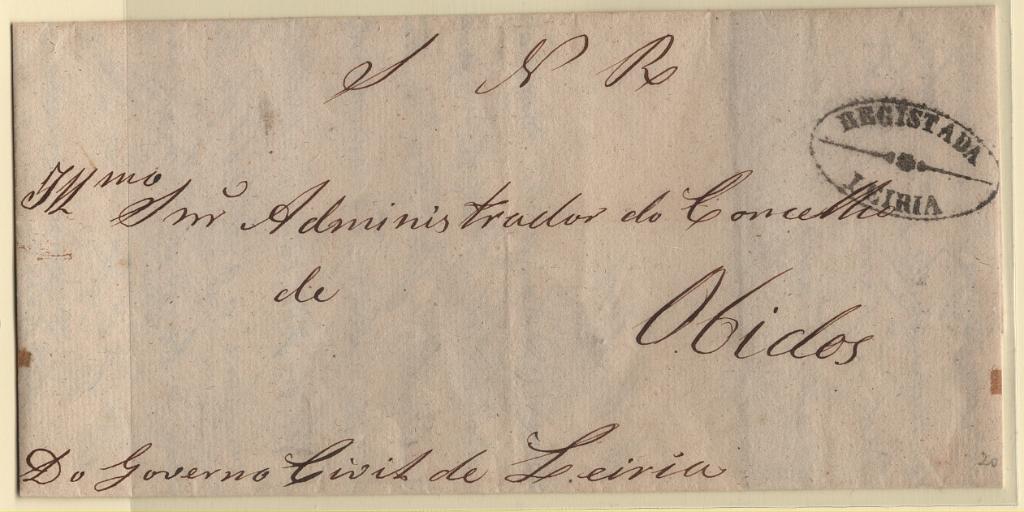 S N R
REGISTADA
LEIRIA
Illmo Snr Administrador do Concelho
de
Obidos
Do Governo Civil de Leiria
20